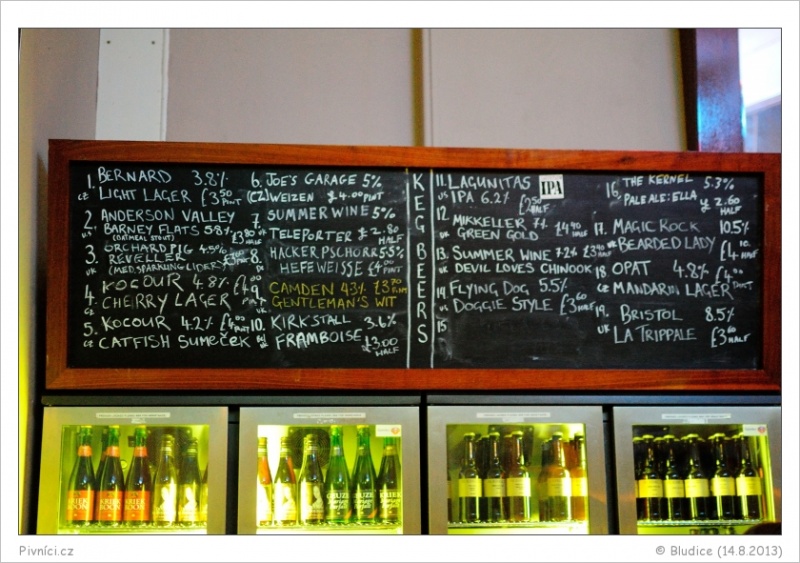 1. BERNARD 3.8%
CZ LIGHT LAGER £3.50 PINT
2. ANDERSON VALLEY
US BARNEY FLATS 5.8%
(OATMEAL STOUT) £3.80 HALF
3. ORCHARD PIG 4.5%
UK REVELLER
(MED. SPARKLING CIDER)
4. KOCOUR 4.8% £4.
CZ CHERRY LAGER PINT
5. KOCOUR 4.2% £4.00 PINT
CZ CATFISH SUMEČEK
6. JOE'S GARAGE 5%
(CZ) WEIZEN £4.00 PINT
7. SUMMER WINE 5%
UK TELEPORTER £2.80 HALF
8. HACKER PSCHORR 5.5%
HEFEWEISSE £4.00 PINT
9. CAMDEN 4.3% £3.70 PINT
GENTLEMAN'S WIT
10. KIRKSTALL 3.6%
FRAMBOISE £3.00 HALF
KEG BEERS
11. LAGUNITAS IPA
US IPA 6.2% £3.50 HALF
12. MIKKELLER 7% £4.40 HALF
GREEN GOLD
13. SUMMER WINE 7.2% HALF
UK DEVIL LOVES CHINOOK
14. FLYING DOG 5.5%
US DOGGIE STYLE £3.60 HALF
15
16. THE KERNEL 5.3%
PALE ALE: ELLA £2.60 HALF
17. MAGIC ROCK 10.5%
UK BEARDED LADY £4.10 HALF
18 OPAT 4.8% £4.00 PINT
CZ MANDARIN LAGER
19. BRISTOL 8.5%
UK LA TRIPPALE £3.60 HALF
KRIEK BOON KRIEK BOON KRIEK BOON
GEUZE GEUZE KRIEK
Pivníci.cz
© Bludice (14.8.2013)